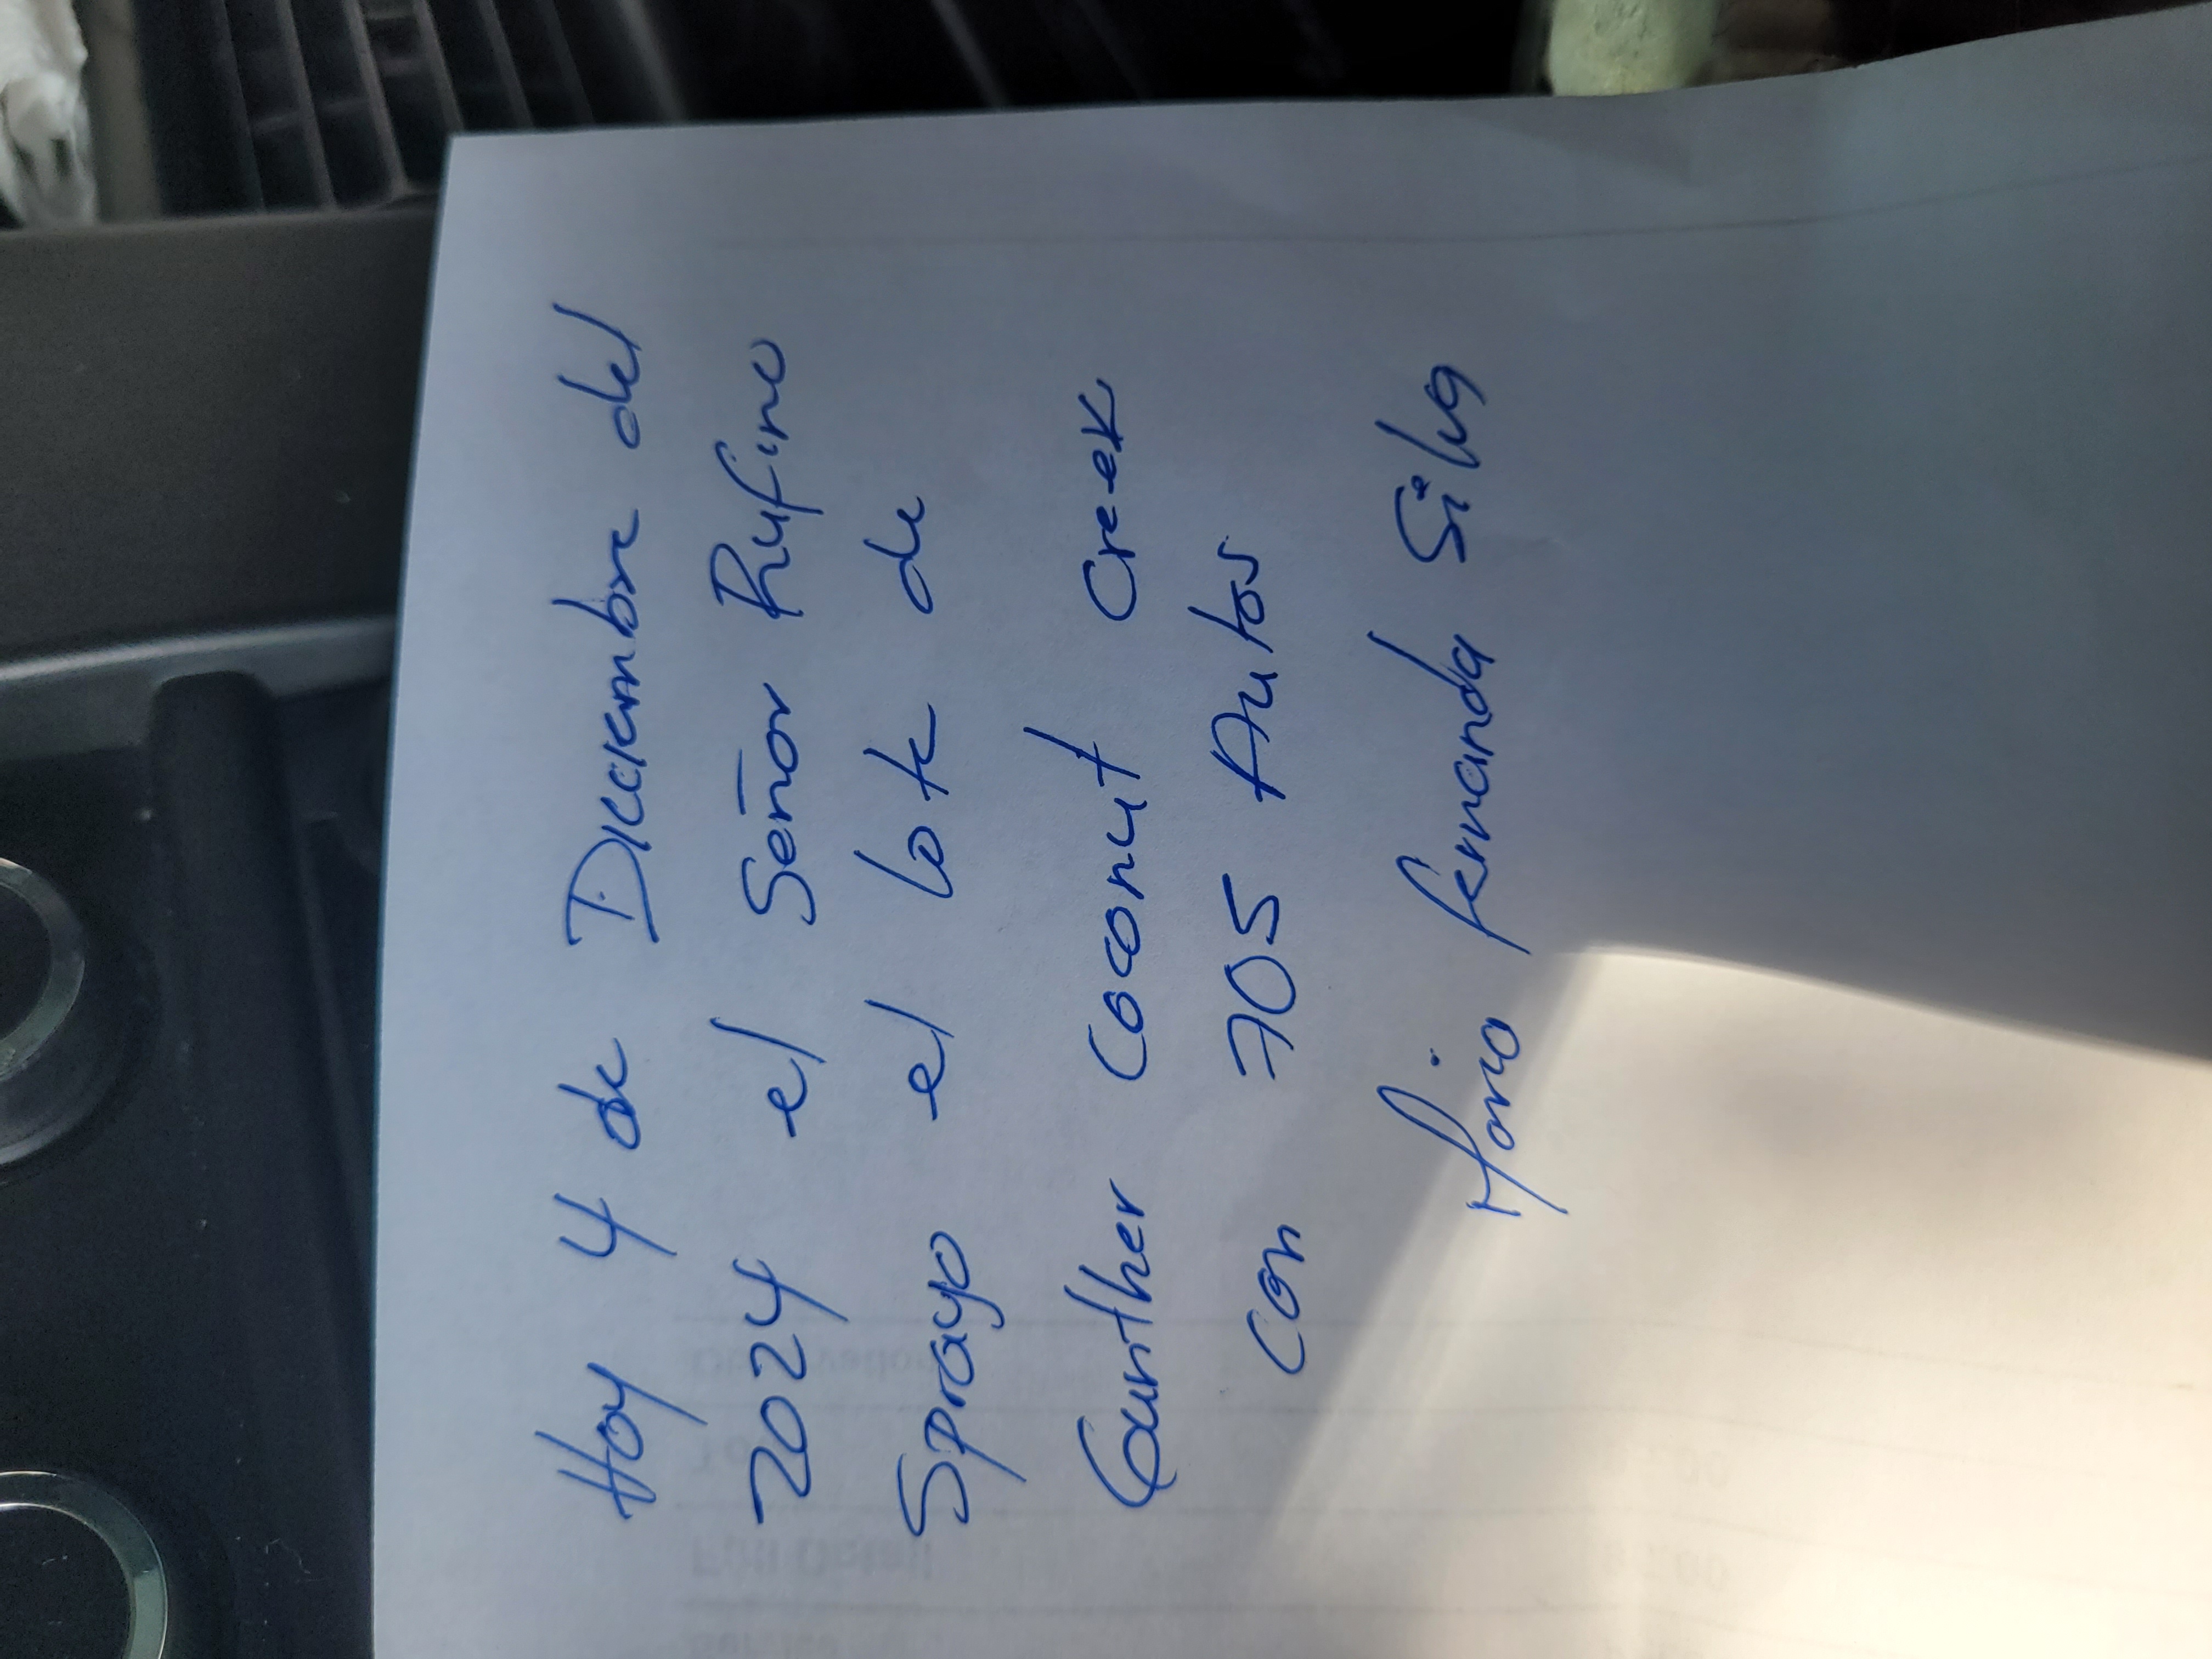 Hoy 4 de Diciembre del
2024 el Señor Rufino
Sprayo el lote de
Gunther Coconut Creek
con 705 Autos
Maria fernanda Silva